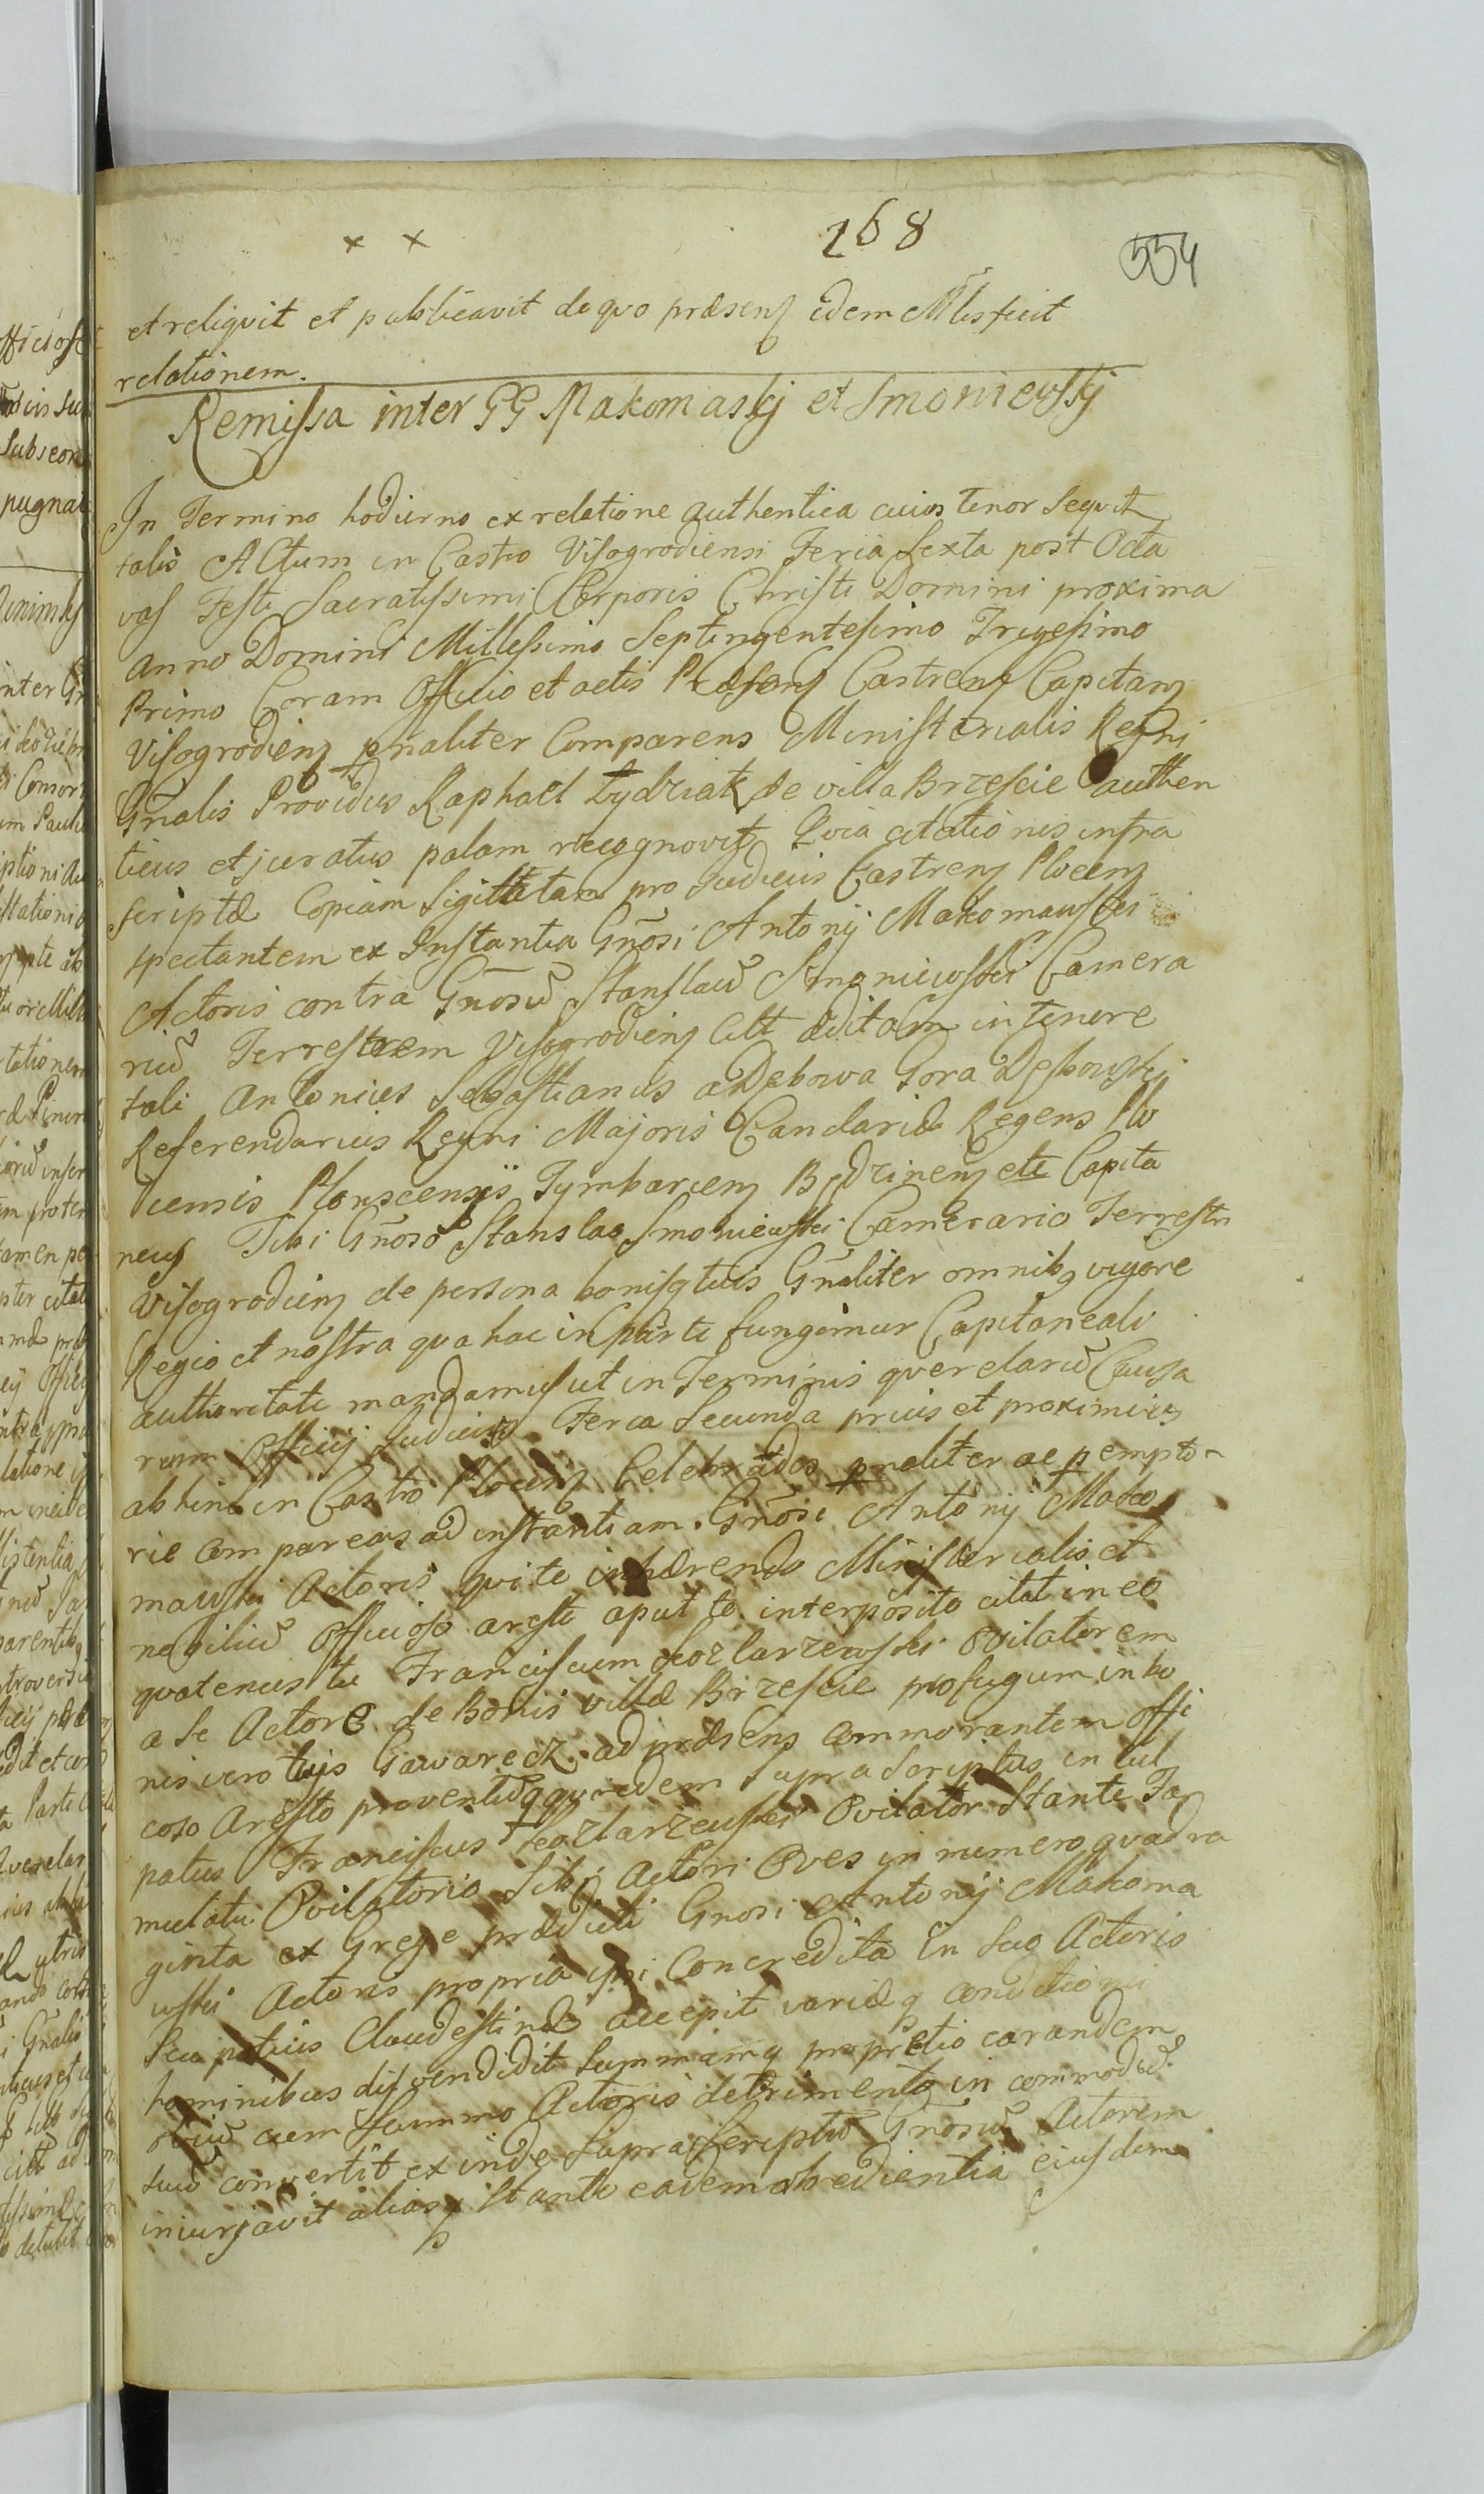 x x
168
554
et reliquit et publicavit de quo præsens idem Mlis fecit
relationem.
Remissa inter GG Makomaskj et Smoniewskj
In Termino hodierno ex relatione authentica cuius tenor Sequit
talis Actum in Castro Visogrodiensi Feria Sexta post Octa
vas Festi Sacratissimi Corporis Christi Domini proxima
anno Domini Millesimo Septingentesimo Trigesimo
Primo Coram Officio et actis Præsens Castrens Capitans
Visogrodiens pnaliter Comparens Ministerialis Regni
Gñalis Providus Raphael Łydziak de villa Brzescie authen
ticus et juratus palam recognovit Quia citationis infra
scriptæ Copiam Sigillatam pro Judiciis Castrens Plocens
spectantem ex Instantia Gñosi Antonij Makomawski
Actoris contra Gñosũ Stanslaũ Smoniewski Camera
riũ Terrestrem Visogrodiens Citt æditam in tenore
tali Antonius Sebastianus a Debowa Gora Dębowski
Referendarius Regni Majoris Canclariæ Regens Plo
ciensis Plonscensis Tymbarcens Będzinens ett Capita
neus Tibi Gñoso Stanslao Smoniewski Camerario Terrestri
Visogrodiens de persona bonisq tuis Gñaliter omnibq vigore
Regio et nostra qva hac in parte fungimur Capitaneali
authoritate mandamus ut in Terminis querelarũ Causa
rum Officij Judicii Feria Secunda prius et proximius
ab hinc in Castro Plocens Celebrados pnaliter ac pempto
rie compareas ad instantiam Gñosi Antonij Mako
mawski Actoris qui te inhærendo Ministerialis et
nobiliũ officioso aresti aput te interposito citat in eo
quatenus tu Franciscum Kozlarzewski Ovilatorem
a Se Actore de Bonis villæ Brzescie profugum in bo
nis vero tuis Gawarecz ad præsens commorantem offi
coso Aresto proventũ qui idem Supra Scriptus incul
patus Franciscus Kozlarzewski Ovilator Stante Fa
mulatu Ovilatorio Sibi Actori Oves in numero quadra
ginta ex Grege prædicti Gnosi Antonij Makoma
wski Actoris propria ipsi Concredita in suo Actoris
Clandestinæ accepit variæq conditioni
hominibus disvendidit Summamq pro pretio earandem
oviũ cum Summo Actoris detrimento in commodũ
suũ convertit ex inde Supra Scriptũ Gñosũ Actorem
iniuriavit aliasq Stante eadem obedientia eiusdem